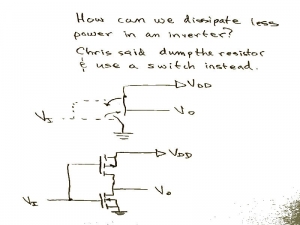 How can we dissipate less
power in an inverter?
Chris said dump the resistor
& use a switch instead.
VDD
VI
VO
VDD
VO
VI